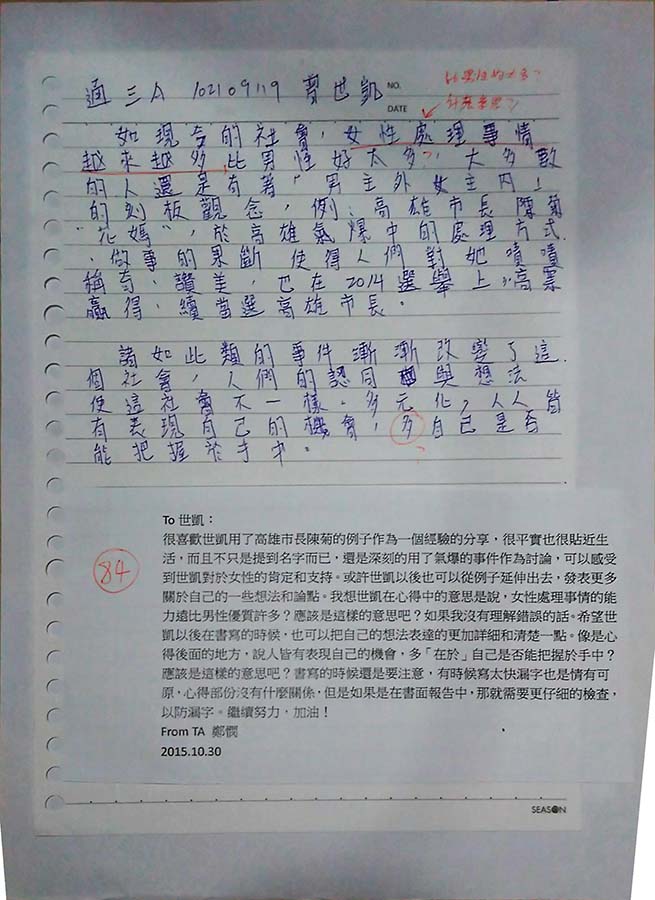 通三A 102109119 賈世凱
NO.
DATE
比男性好太多?
什麼意思?
如現今的社會,女性處理事情
越來越多比男性好太多?,大多數
的人還是有著「男主外女主內」
的刻板觀念,例:高雄市長陳菊
"花媽",於高雄氣爆中的處理方式
、做事的果斷使得人們對她嘖嘖
稱奇、讚美,也在2014選舉上,高票
贏得,續當選高雄市長。
諸如此類的事件漸漸改變了這
個社會,人們的認同與想法
使這社會不一樣。多元化,人人皆
有表現自己的機會,多自己是否
能把握於手中。
?
84
To 世凱:
很喜歡世凱用了高雄市長陳菊的例子作為一個經驗的分享,很平實也很貼近生
活,而且不只是提到名字而已,還是深刻的用了氣爆的事件作為討論,可以感受
到世凱對於女性的肯定和支持。或許世凱以後也可以從例子延伸出去,發表更多
關於自己的一些想法和論點。我想世凱在心得中的意思是說,女性處理事情的能
力遠比男性優質許多?應該是這樣的意思吧?如果我沒有理解錯誤的話。希望世
凱以後在書寫的時候,也可以把自己的想法表達的更加詳細和清楚一點。像是心
得後面的地方,說人皆有表現自己的機會,多「在於」自己是否能把握於手中?
應該是這樣的意思吧?書寫的時候還是要注意,有時候寫太快漏字也是情有可
原,心得部份沒有什麼關係,但是如果是在書面報告中,那就需要更仔細的檢查,
以防漏字。繼續努力,加油!
From TA 鄭憫
2015.10.30
SEASON